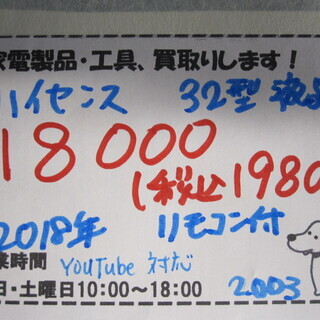 家電製品・工具、買取りします！
ハイセンス 32型 液晶
18000
(税込1980
2018年 リモコン付
業時間 YouTube 対応
日・土曜日10:00〜18:00 2003